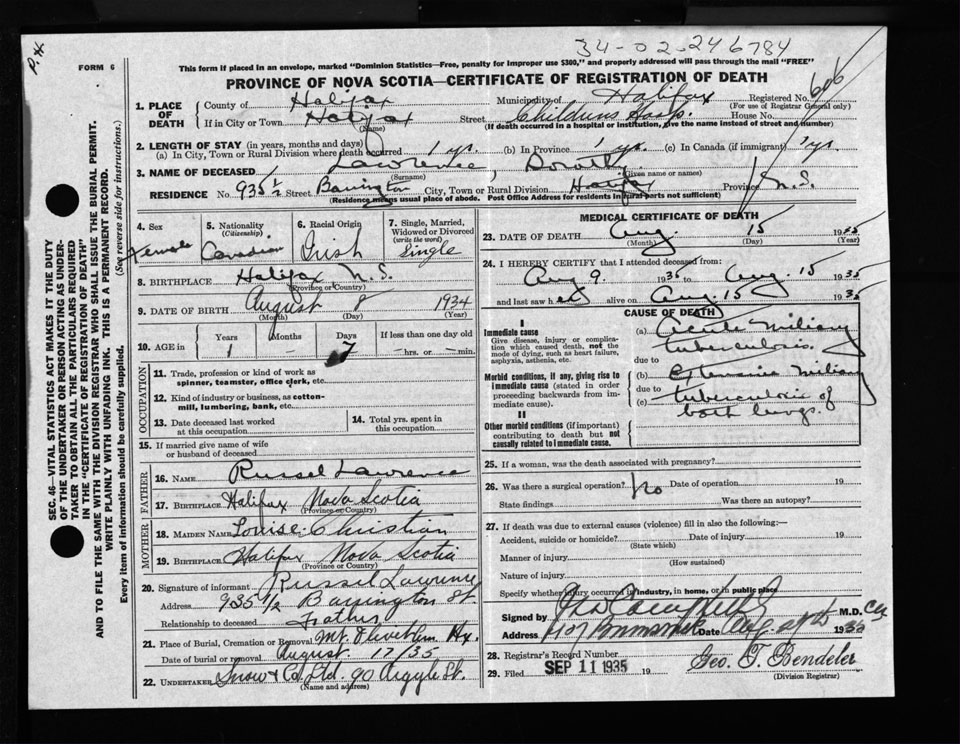 34-02-246784
P.X.
FORM 6
This form if placed in an envelope, marked "Dominion Statistics—Free, penalty for improper use $300," and properly addressed will pass through the mail "FREE"
PROVINCE OF NOVA SCOTIA—CERTIFICATE OF REGISTRATION OF DEATH
1. PLACE OF DEATH County of Halifax Municipality of Halifax Registered No.
(For use of Registrar General only)
If in City or Town Halifax Street Childrens Hosp. House No.
(Name) (If death occurred in a hospital or institution, give the name instead of street and number)
2. LENGTH OF STAY (in years, months and days)
(a) In City, Town or Rural Division where death occurred 1 yr. (b) In Province 1 yr. (c) In Canada (if immigrant) 1 yr.
3. NAME OF DECEASED Lawrence, Doroth
(Surname) (Given name or names)
RESIDENCE No. 935½ Street Barrington City, Town or Rural Division Halifax Province N.S.
(Residence means usual place of abode. Post Office Address for residents in rural parts not sufficient)
4. Sex Female
5. Nationality (Citizenship) Canadian
6. Racial Origin Irish
7. Single, Married, Widowed or Divorced (write the word) Single
8. BIRTHPLACE Halifax N.S.
(Province or Country)
9. DATE OF BIRTH August 8 1934
(Month) (Day) (Year)
10. AGE in Years 1 Months – Days 7 If less than one day old – hrs. or – min.
OCCUPATION
11. Trade, profession or kind of work as spinner, teamster, office clerk, etc.
12. Kind of industry or business, as cotton-mill, lumbering, bank, etc.
13. Date deceased last worked at this occupation
14. Total yrs. spent in this occupation
15. If married give name of wife or husband of deceased
FATHER
16. NAME Russel Lawrence
17. BIRTHPLACE Halifax Nova Scotia
(Province or Country)
MOTHER
18. MAIDEN NAME Louise Christian
19. BIRTHPLACE Halifax Nova Scotia
(Province or Country)
20. Signature of informant Russel Lawrence
Address 935 1/2 Barrington St.
Relationship to deceased father
21. Place of Burial, Cremation or Removal Mt. Olivet Hx.
Date of burial or removal August 17/35
22. UNDERTAKER Snow & Co. Ltd. 90 Argyle St.
(Name and address)
MEDICAL CERTIFICATE OF DEATH
23. DATE OF DEATH Aug. 15 1935
(Month) (Day) (Year)
24. I HEREBY CERTIFY that I attended deceased from:
Aug 9 1935 to Aug. 15 1935
and last saw h er alive on Aug. 15 1935
CAUSE OF DEATH
I
Immediate cause
Give disease, injury or complication which caused death, not the mode of dying, such as heart failure, asphyxia, asthenia, etc.
(a) Acute Miliary tuberculosis.
due to
Morbid conditions, if any, giving rise to immediate cause (stated in order proceeding backwards from immediate cause).
(b) Extensive Miliary
due to
(c) tuberculosis of both lungs.
II
Other morbid conditions (if important) contributing to death but not causally related to immediate cause.
25. If a woman, was the death associated with pregnancy?
26. Was there a surgical operation? No Date of operation 19
State findings Was there an autopsy?
27. If death was due to external causes (violence) fill in also the following:—
Accident, suicide or homicide? Date of injury 19
(State which)
Manner of injury
(How sustained)
Nature of injury
Specify whether injury occurred in industry, in home, or in public place
Signed by Campbell M.D.
Address Date 1935
28. Registrar's Record Number
29. Filed SEP 11 1935 19 Geo. T. Bendeler
(Division Registrar)
SEC. 46—VITAL STATISTICS ACT MAKES IT THE DUTY
OF THE UNDERTAKER OR PERSON ACTING AS UNDER-
TAKER TO OBTAIN ALL THE PARTICULARS REQUIRED
IN THE "CERTIFICATE OF REGISTRATION OF DEATH"
AND TO FILE THE SAME WITH THE DIVISION REGISTRAR WHO SHALL ISSUE THE BURIAL PERMIT.
WRITE PLAINLY WITH UNFADING INK. THIS IS A PERMANENT RECORD.
Every item of information should be carefully supplied. (See reverse side for instructions.)